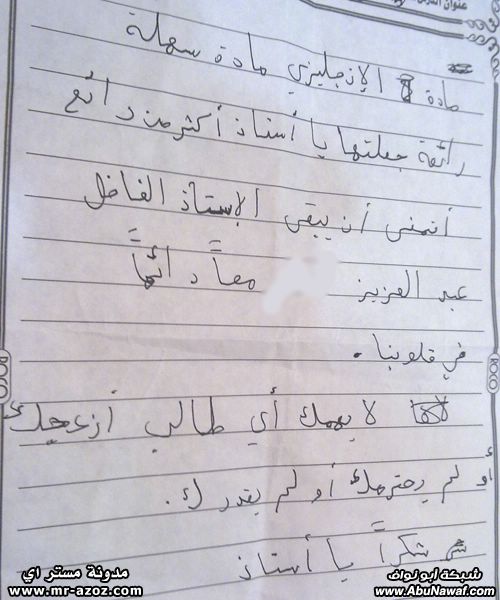 مادة الإنجليزي مادة سهلة
رائعة جعلتها يا أستاذ أكثر من رائع
أتمنى أن يبقى الإستاذ الفاضل
عبد العزيز معاً دائماً
في قلوبنا.
لا يهمك أي طالب أزعجك
أو لم يحترمك أو لم يقدرك.
شكراً يا أستاذ
ROCO
ROCO
مدونة مستر اي
www.mr-azoz.com
شبكة أبو نواف
www.AbuNawaf.com